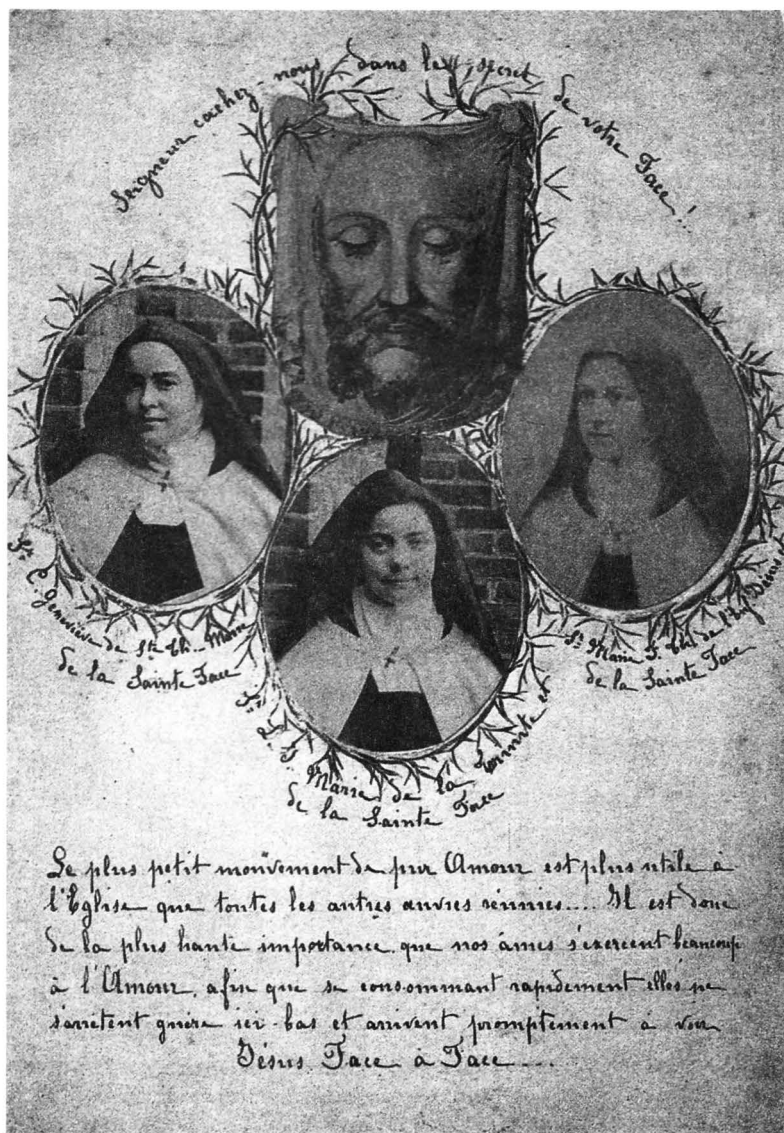 Seigneur cachez-nous dans le secret de votre Face !
Sr C. Geneviève de Ste Th. Marie
de la Sainte Face
Sr M. F. Th. de l'Enf. Jésus et
de la Sainte Face
Sr L. J. Marie de la Trinité et
de la Sainte Face
Le plus petit mouvement de pur Amour est plus utile à
l'Eglise que toutes les autres œuvres réunies.... Il est donc
de la plus haute importance que nos âmes s'exercent beaucoup
à l'Amour, afin que se consommant rapidement elles ne
s'arrêtent guère ici-bas et arrivent promptement à voir
Jésus Face à Face....